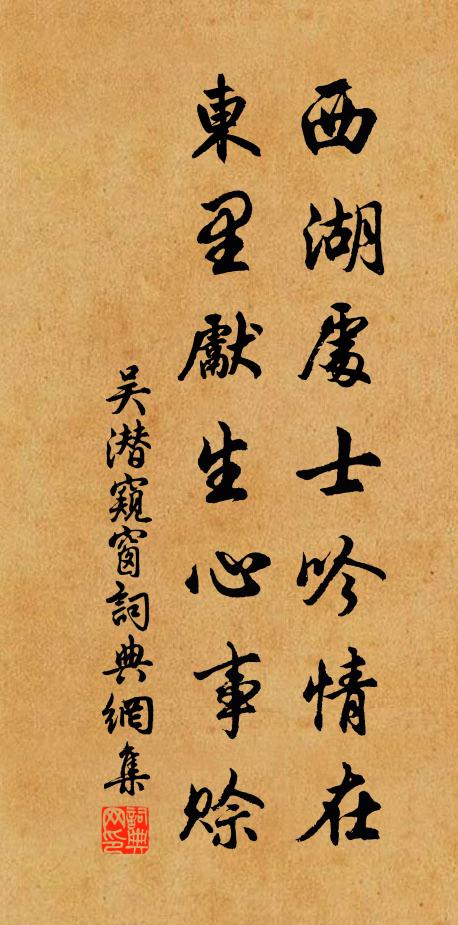 西湖處士吟情在
東里獻生心事賒
吴潜窺窗詞典網集
詞典网印